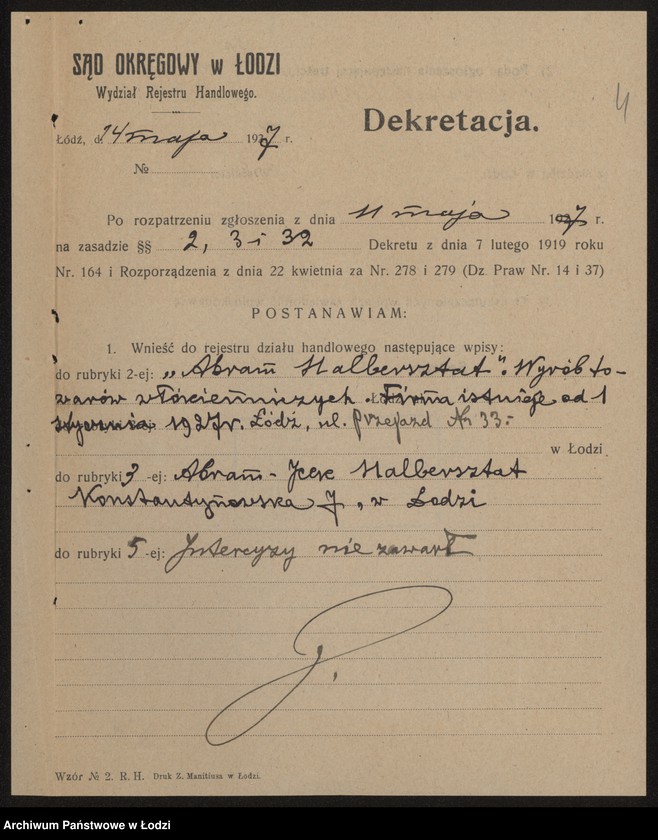 SĄD OKRĘGOWY w ŁODZI
Wydział Rejestru Handlowego.
4
Dekretacja.
Łódź, d. 14 maja 1927 r.
№
Po rozpatrzeniu zgłoszenia z dnia 11 maja 1927 r.
na zasadzie §§ 2, 3 i 32 Dekretu z dnia 7 lutego 1919 roku
Nr. 164 i Rozporządzenia z dnia 22 kwietnia za Nr. 278 i 279 (Dz. Praw Nr. 14 i 37)
POSTANAWIAM:
1. Wnieść do rejestru działu handlowego następujące wpisy:
do rubryki 2-ej: „Abram Halbersztat". Wyrób to-
warów włóścienniczych. Firma istnieje od 1
stycznia 1927 r. Łódź, ul. Przejazd № 33.-
w Łodzi
do rubryki 3-ej: Abram-Icek Halbersztat
Konstantynowska 7, w Łodzi
do rubryki 5-ej: Intercyzy nie zawarł
Wzór № 2. R. H. Druk Z. Manitiusa w Łodzi.
Archiwum Państwowe w Łodzi